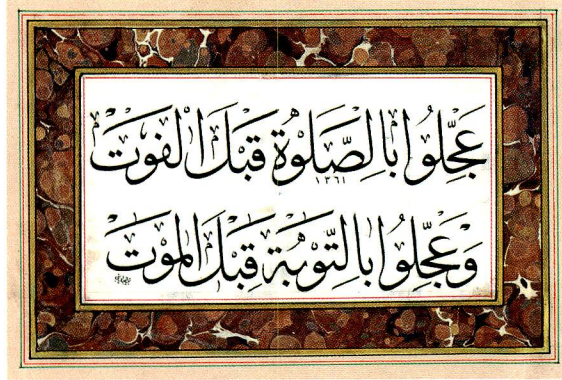 عَجِّلُوا بِالصَّلٰوةِ قَبْلَ الْفَوْتِ
١٣٦١
وَعَجِّلُوا بِالتَّوْبَةِ قَبْلَ الْمَوْتِ